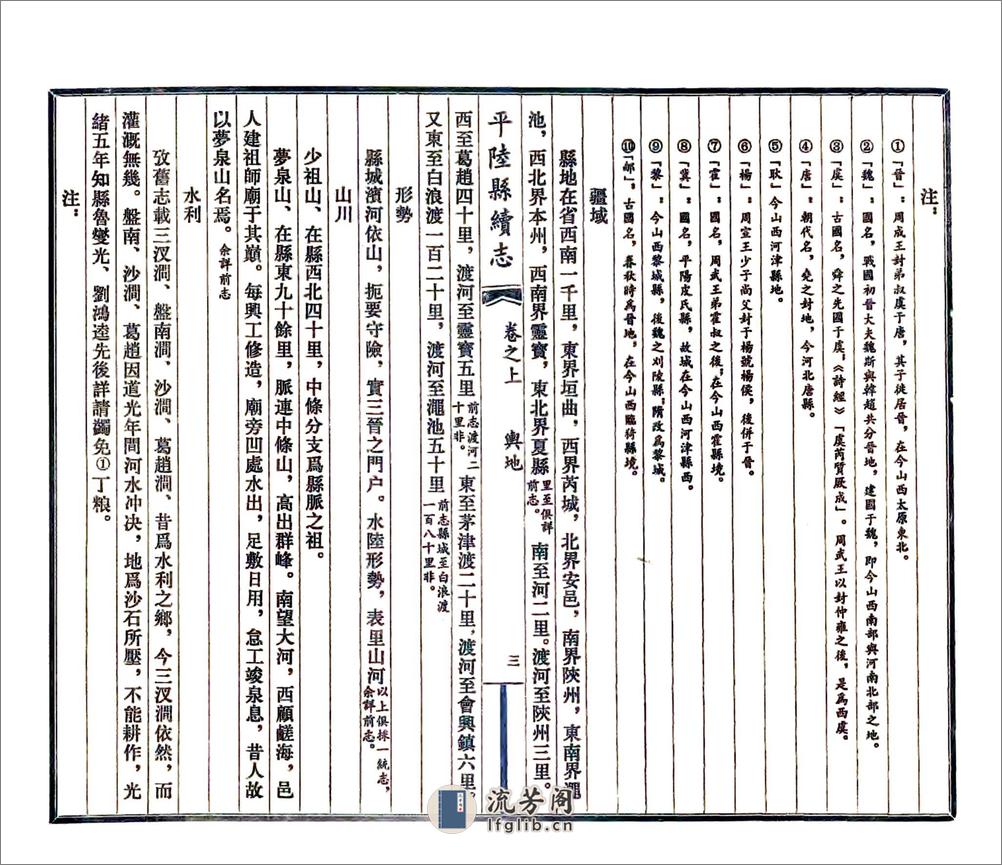 注：
①「晉」：周成王封弟叔虞于唐，其子徙居晉，在今山西太原東北。
②「魏」：國名，戰國初晉大夫魏斯與韓趙共分晉地，建國于魏，即今山西南部與河南北部之地。
③「虞」：古國名，舜之先國于虞；《詩經》「虞芮質厥成」。周武王以封仲雍之後，是爲西虞。
④「唐」：朝代名，堯之封地，今河北唐縣。
⑤「耿」：今山西河津縣地。
⑥「楊」：周宣王少子尚父封于楊號楊侯，後併于晉。
⑦「霍」：國名，周武王弟霍叔之後；在今山西霍縣境。
⑧「冀」：國名，平陽皮氏縣，故城在今山西河津縣西。
⑨「黎」：今山西黎城縣，後魏之刈陵縣；隋改爲黎城。
⑩「郇」：古國名，春秋時爲晉地，在今山西臨猗縣境。
疆域
縣地在省西南一千里，東界垣曲，西界芮城，北界安邑，南界陝州，東南界澠
池，西北界本州，西南界靈寶，東北界夏縣里至俱詳前志。南至河二里。渡河至陝州三里。
平陸縣續志 卷之上 輿地 三
西至葛趙四十里，渡河至靈寶五里前志渡河二十里非。東至茅津渡二十里，渡河至會興鎮六里。
又東至白浪渡一百二十里，渡河至澠池五十里前志縣城至白浪渡一百八十里非。
形勢
縣城濱河依山，扼要守險，實三晉之門户。水陸形勢，表里山河以上俱採一統志，余詳前志。
山川
少祖山、在縣西北四十里，中條分支爲縣脈之祖。
夢泉山、在縣東九十餘里，脈連中條山，高出群峰。南望大河，西顧鹺海，邑
人建祖師廟于其巔。每興工修造，廟旁凹處水出，足敷日用，怠工竣泉息，昔人故
以夢泉山名焉。余詳前志
水利
攷舊志載三汊澗、盤南澗、沙澗、葛趙澗、昔爲水利之鄉，今三汊澗依然，而
灌溉無幾。盤南、沙澗、葛趙因道光年間河水冲决，地爲沙石所壓，不能耕作，光
緒五年知縣魯燮光、劉鴻逵先後詳請蠲免①丁粮。
注：
流芳阁
lfglib.cn